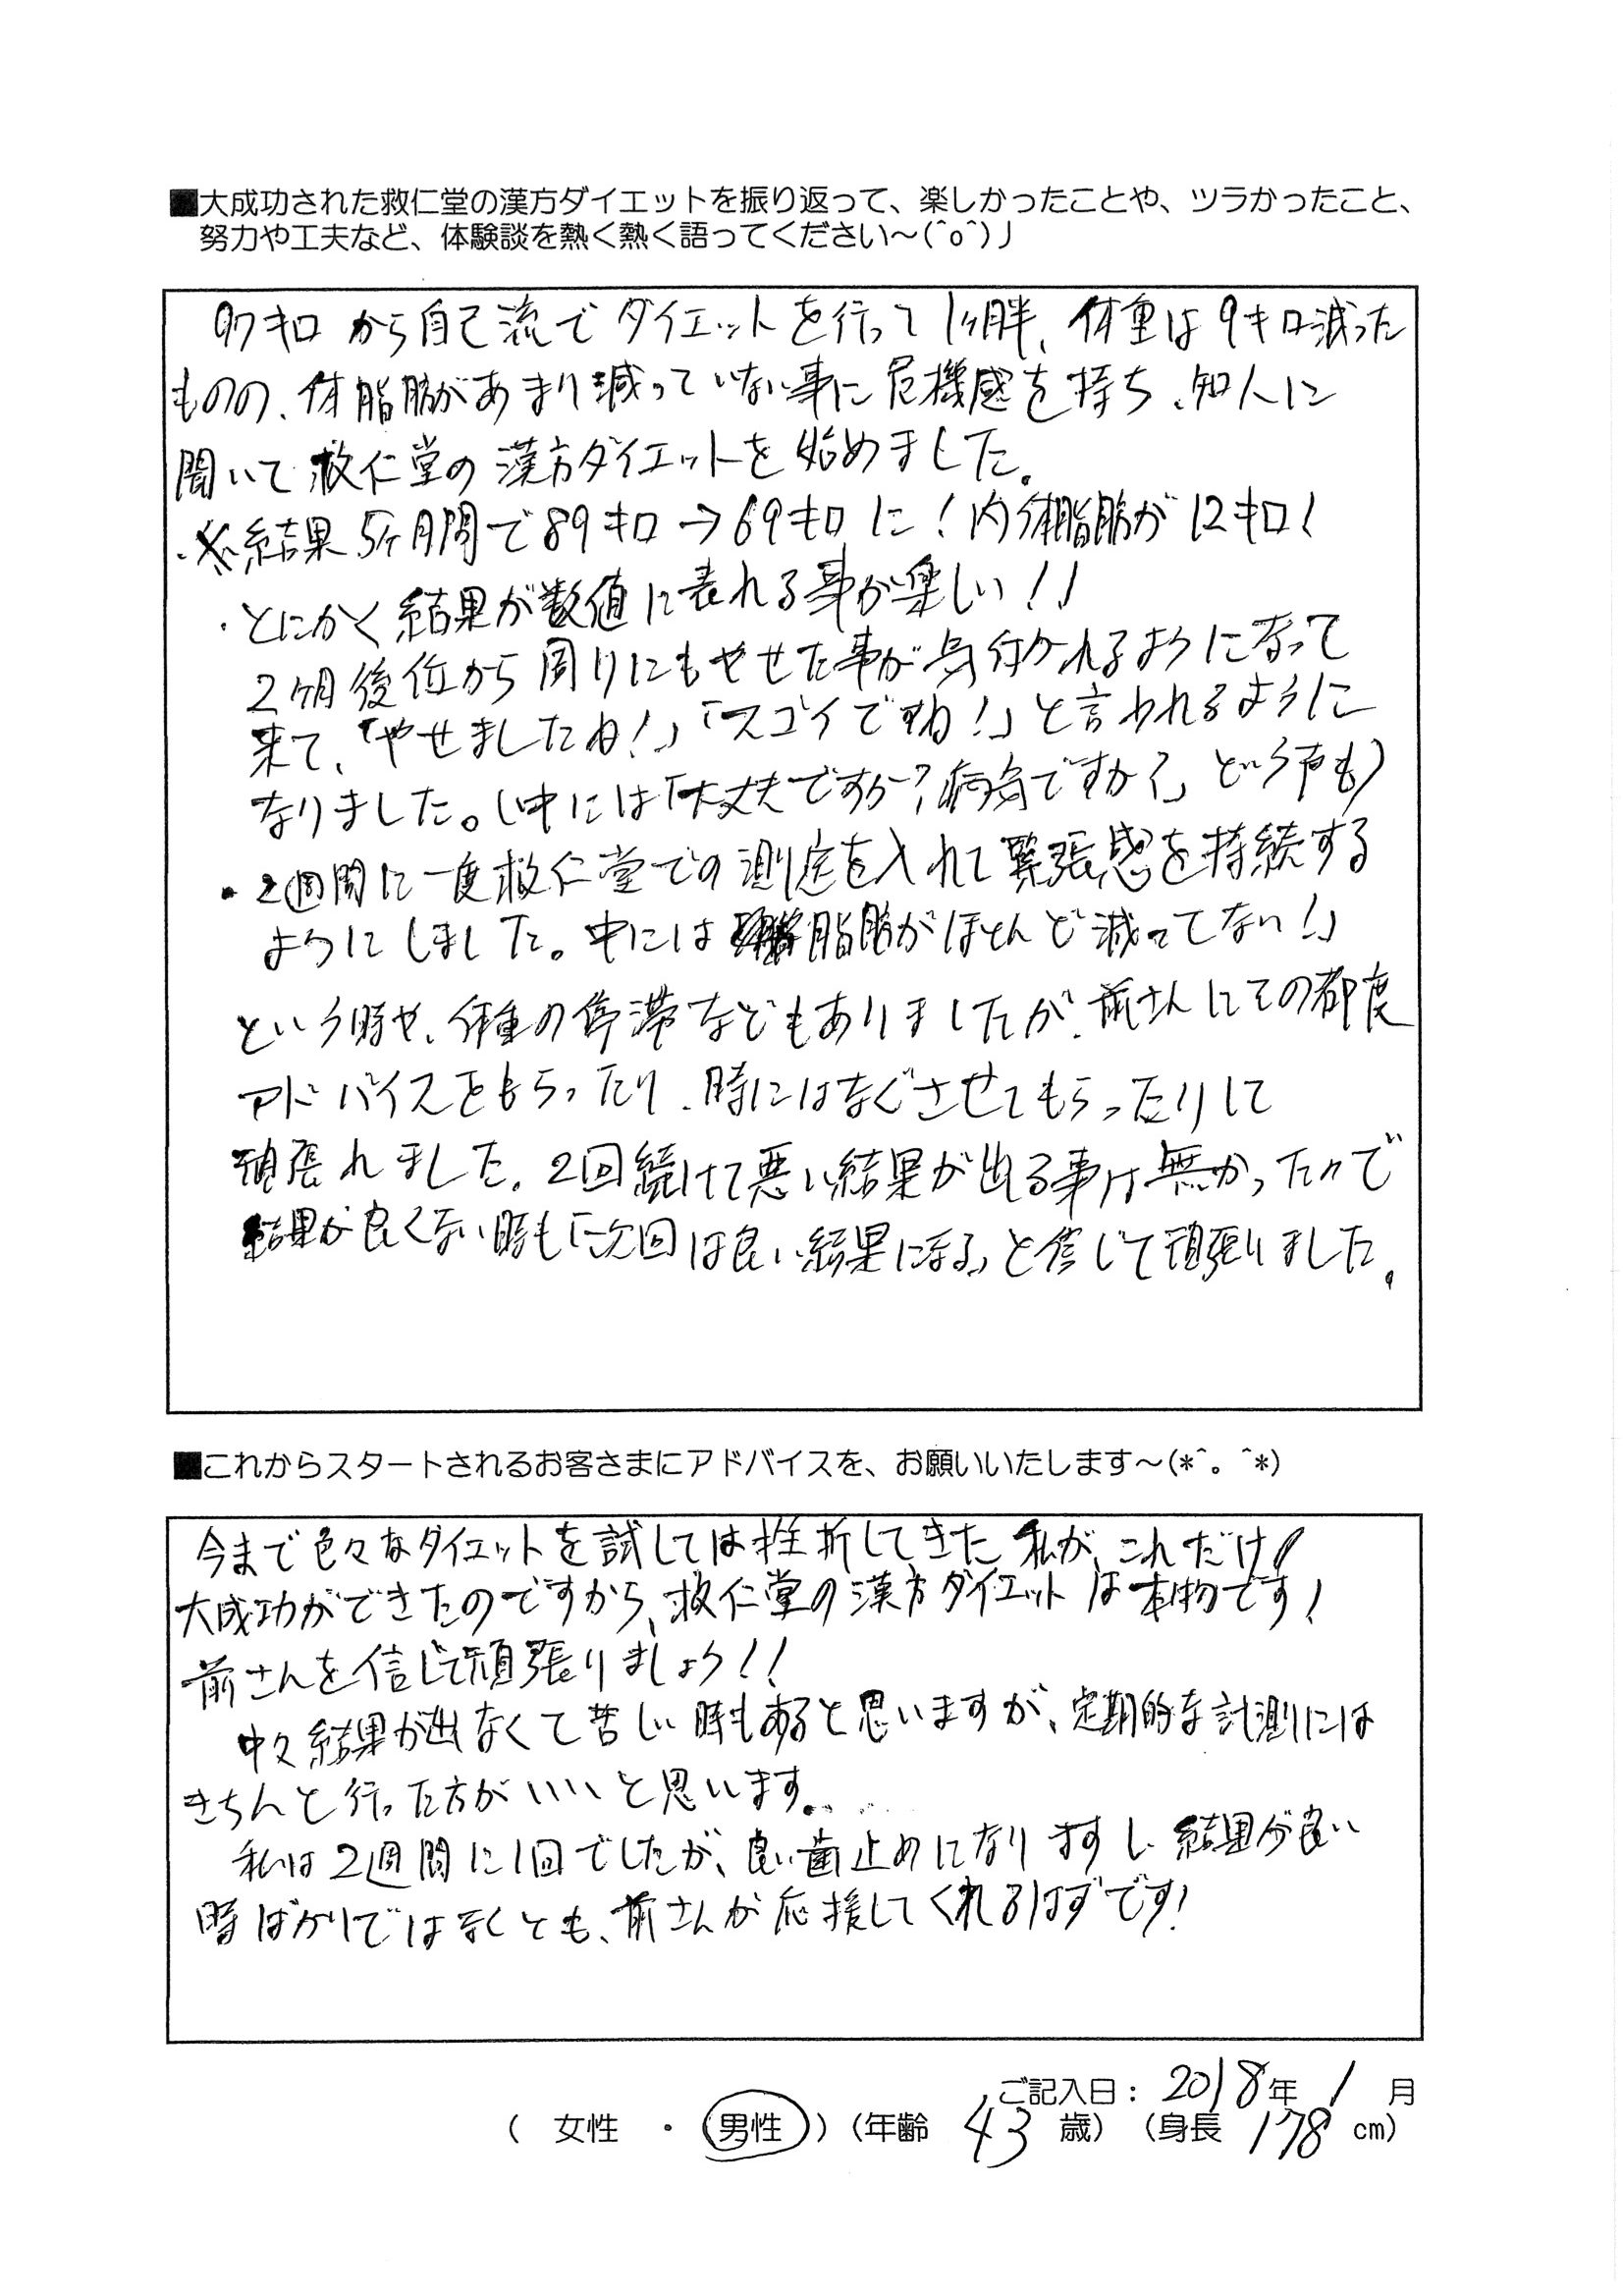 ■大成功された救仁堂の漢方ダイエットを振り返って、楽しかったことや、ツラかったこと、
努力や工夫など、体験談を熱く熱く語ってください～(^o^)丿
97キロから自己流でダイエットを行って1ヶ月半、体重は9キロ減った
ものの、体脂肪があまり減っていない事に危機感を持ち、知人に
聞いて救仁堂の漢方ダイエットを始めました。
・※結果5ヶ月間で89キロ→69キロに!内体脂肪が12キロ!
・とにかく結果が数値に表れる事が楽しい!!
2ヶ月後位から周りにもやせた事が気付かれるようになって
来て、「やせましたね!」「スゴイですね!」と言われるように
なりました。(中には「大丈夫ですか?病気ですか?」という声も)
・2週間に一度救仁堂での測定を入れて緊張感を持続する
ようにしました。中には脂肪がほとんど減ってない!」
という時や、体重の停滞などもありましたが、前さんにその都度
アドバイスをもらったり、時にはなぐさせてもらったりして
頑張れました。2回続けて悪い結果が出る事は無かったので
結果が良くない時も「次回は良い結果になる」と信じて頑張りました。
■これからスタートされるお客さまにアドバイスを、お願いいたします～(*^。^*)
今まで色々なダイエットを試しては挫折してきた私が、これだけ
大成功ができたのですから、救仁堂の漢方ダイエットは本物です!
前さんを信じて頑張りましょう!!
中々結果が出なくて苦しい時もあると思いますが、定期的な計測には
きちんと行った方がいいと思います。
私は2週間に1回でしたが、良い歯止めになりますし、結果が良い
時ばかりではなくとも、前さんが応援してくれるはずです!
ご記入日：2018年1月
(女性・男性)(年齢43歳)(身長178cm)